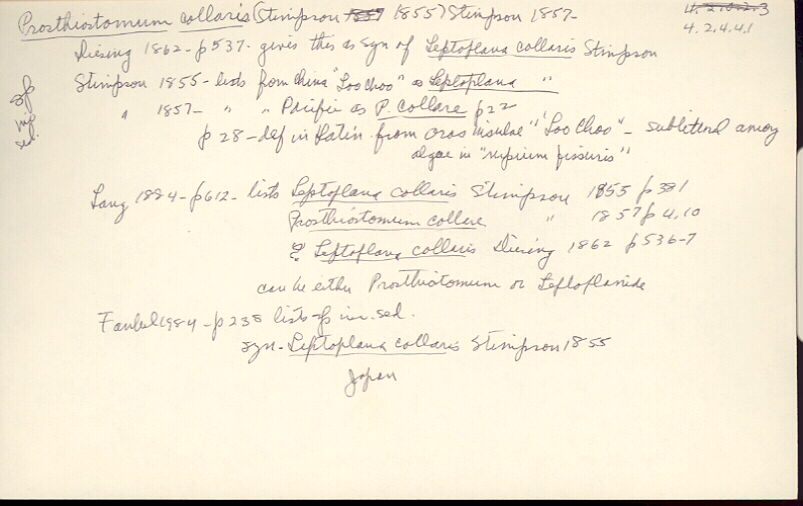 Prosthiostomum collaris (Stimpson 1857 1855) Stimpson 1857-
4.2.10.2.3
4.2.4.4.1
Diesing 1862-p537- gives this as syn of Leptoplana collaris Stimpson
Stimpson 1855- lists from China "Loo Choo" as Leptoplana "
" 1857- " " Pacific as P. collare p22
sp inc sed.
p 28-def in Latin from oras insulae "Loo Choo" - sublittoral among
algae in "rupium fissuris"
Lang 1884-p612- lists Leptoplana collaris Stimpson 1855 p381
Prosthiostomum collare " 1857 p 4,10
? Leptoplana collaris Diesing 1862 p536-7
can be either Prosthiotomum or Leptoplanide
Faubel 1984-p238 lists sp inc. sed.
syn- Leptoplana collaris Stimpson 1855
Japan